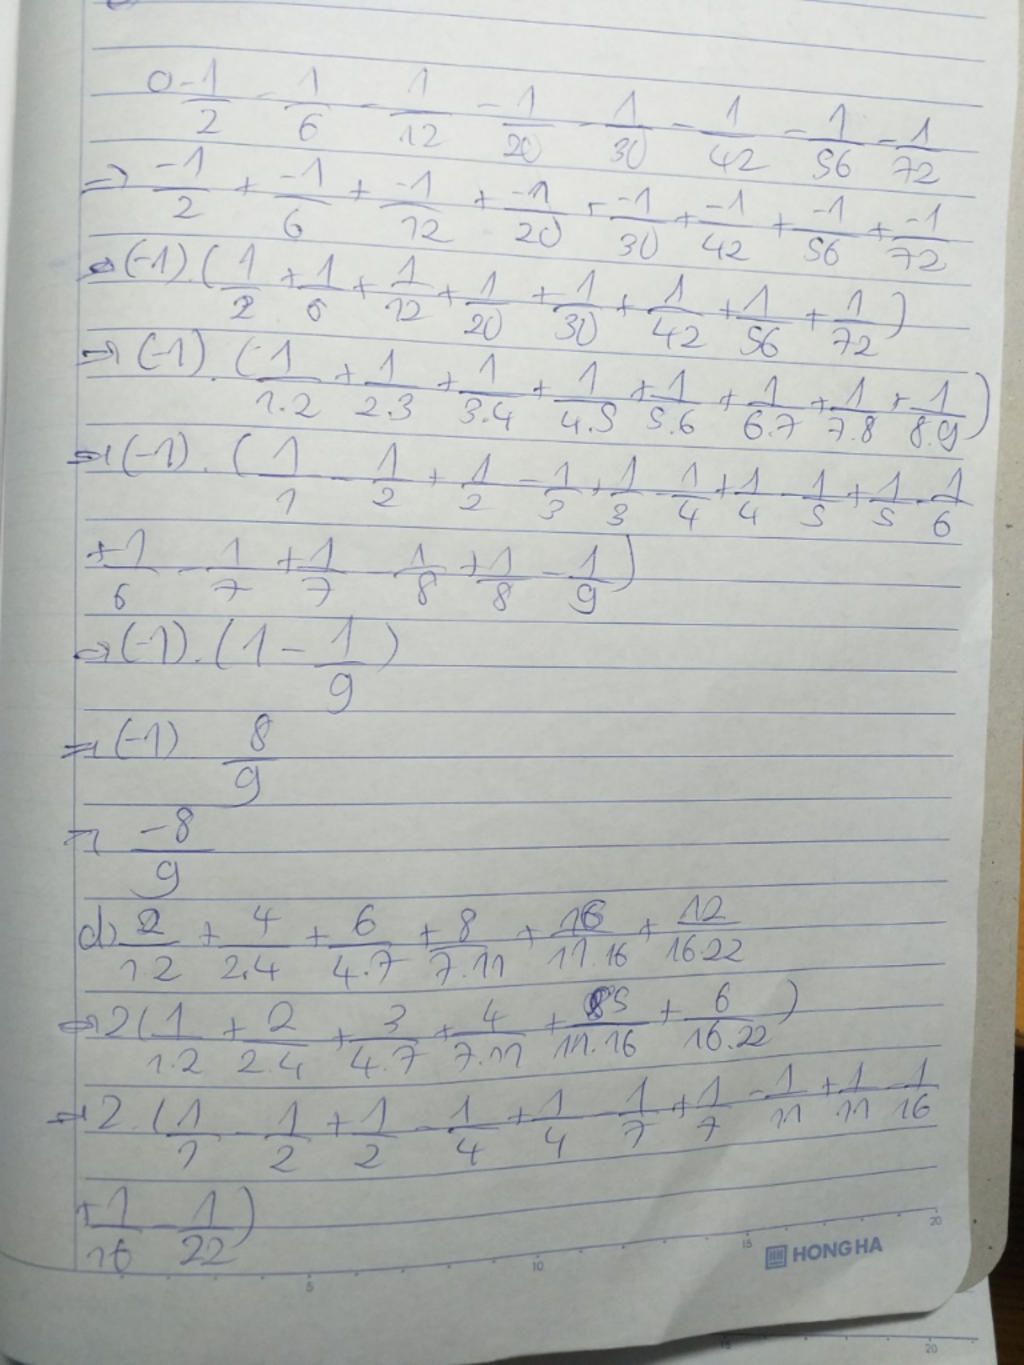 c) -1/2 - 1/6 - 1/12 - 1/20 - 1/30 - 1/42 - 1/56 - 1/72
=> -1/2 + -1/6 + -1/12 + -1/20 + -1/30 + -1/42 + -1/56 + -1/72
=> (-1).(1/2 + 1/6 + 1/12 + 1/20 + 1/30 + 1/42 + 1/56 + 1/72)
=> (-1).(1/1.2 + 1/2.3 + 1/3.4 + 1/4.5 + 1/5.6 + 1/6.7 + 1/7.8 + 1/8.9)
=> (-1).(1/1 - 1/2 + 1/2 - 1/3 + 1/3 - 1/4 + 1/4 - 1/5 + 1/5 - 1/6
+ 1/6 - 1/7 + 1/7 - 1/8 + 1/8 - 1/9)
=> (-1).(1 - 1/9)
=> (-1) 8/9
=> -8/9
d) 2/1.2 + 4/2.4 + 6/4.7 + 8/7.11 + 10/11.16 + 12/16.22
=> 2(1/1.2 + 2/2.4 + 3/4.7 + 4/7.11 + 5/11.16 + 6/16.22)
=> 2.(1/1 - 1/2 + 1/2 - 1/4 + 1/4 - 1/7 + 1/7 - 1/11 + 1/11 - 1/16
+ 1/16 - 1/22)
5 10 15 20
HONG HA
15 20